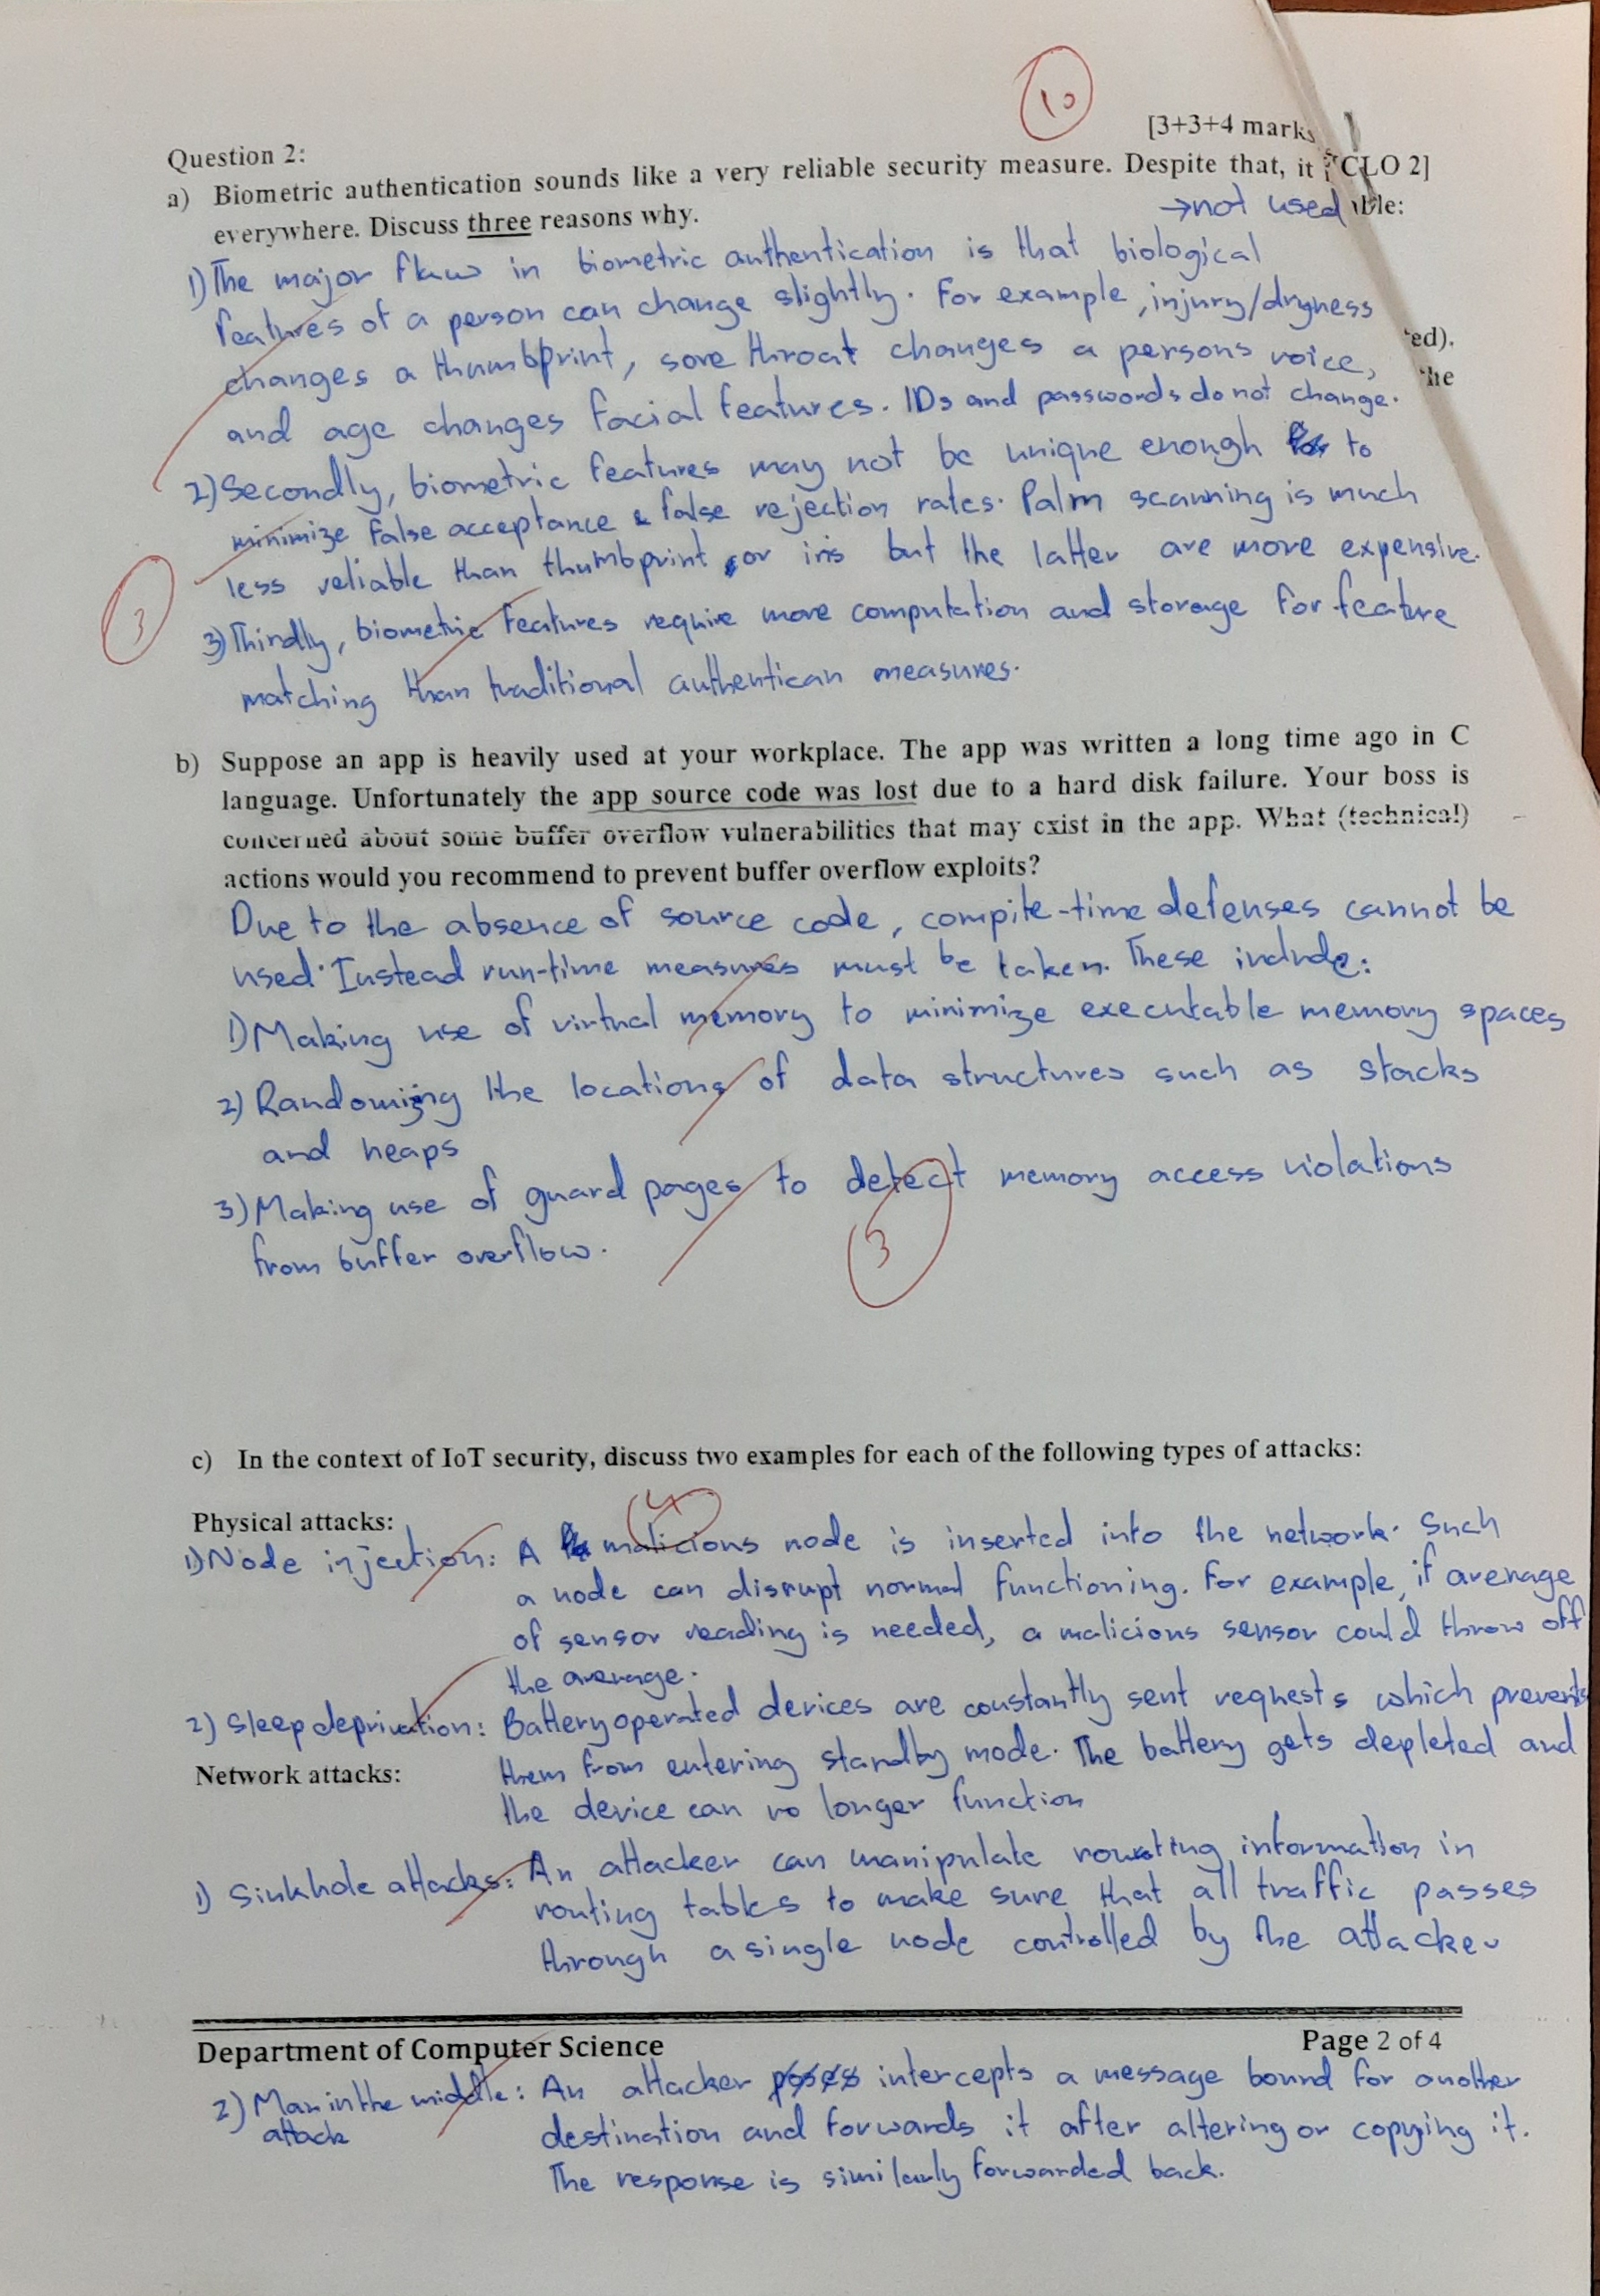 10
[3+3+4 marks
Question 2:
CLO 2]
a) Biometric authentication sounds like a very reliable security measure. Despite that, it
→not used
ble:
everywhere. Discuss three reasons why.
1) The major flaw in biometric authentication is that biological
features of a person can change slightly. For example, injury/dryness
changes a thumbprint, sore throat changes a persons voice,
ed).
he
and age changes facial features. IDs and passwords do not change.
2) Secondly, biometric features may not be unique enough to
minimize false acceptance & false rejection rates. Palm scanning is much
less reliable than thumbprint or iris but the latter are more expensive.
3
3) Thirdly, biometric features require more computation and storage for feature
matching than traditional authentican measures.
b) Suppose an app is heavily used at your workplace. The app was written a long time ago in C
language. Unfortunately the app source code was lost due to a hard disk failure. Your boss is
concerned about some buffer overflow vulnerabilities that may exist in the app. What (technical)
actions would you recommend to prevent buffer overflow exploits?
Due to the absence of source code, compile-time defenses cannot be
used. Instead run-time measures must be taken. These include:
1) Making use of virtual memory to minimize executable memory spaces
2) Randomizing the locations of data structures such as stacks
and heaps
3) Making use of guard pages to detect memory access violations
from buffer overflow.
3
c) In the context of IoT security, discuss two examples for each of the following types of attacks:
4
Physical attacks:
1) Node injection: A malicious node is inserted into the network. Such
a node can disrupt normal functioning. For example, if average
of sensor reading is needed, a malicious sensor could throw off
the average.
2) Sleep deprivation: Battery operated devices are constantly sent requests which prevents
them from entering standby mode. The battery gets depleted and
the device can no longer function
Network attacks:
1) Sinkhole attacks: An attacker can manipulate routing information in
routing tables to make sure that all traffic passes
through a single node controlled by the attacker
Department of Computer Science
Page 2 of 4
2) Man in the middle: An attacker intercepts a message bound for another
attack
destination and forwards it after altering or copying it.
The response is similarly forwarded back.